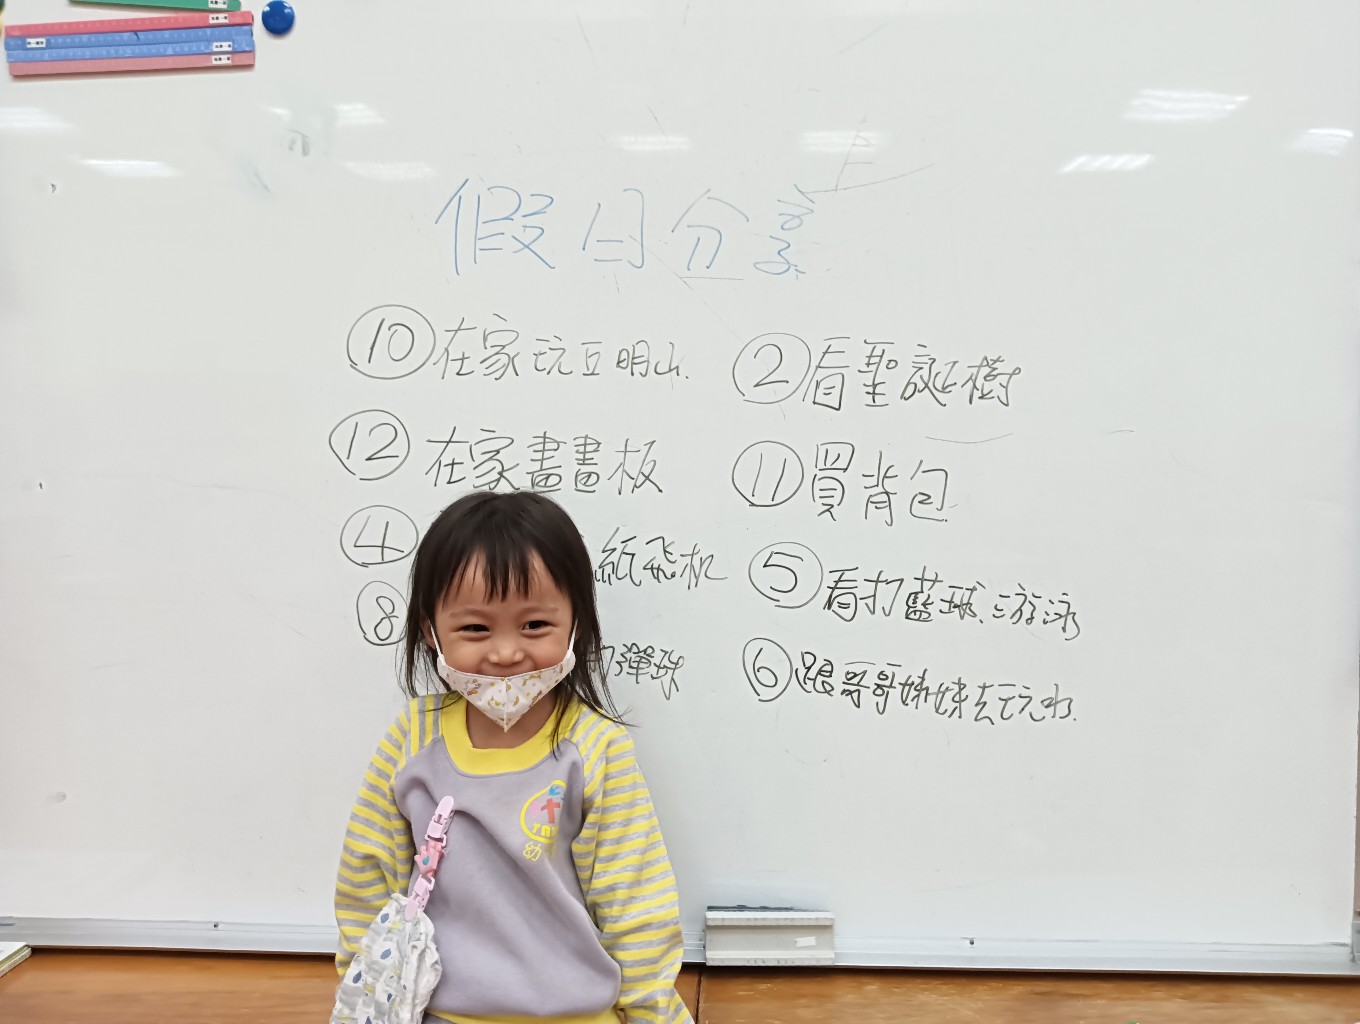 假日分享
⑩在家玩豆明山.
⑫在家畫畫板
④
紙飛机
⑧
打彈珠
②看聖誕樹
⑪買背包
⑤看打藍球、游泳
⑥跟哥哥姊妹去玩水.
幼